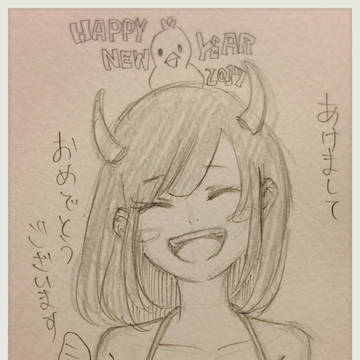 HAPPY
NEW
YEAR
2017
あけまして
おめでとう